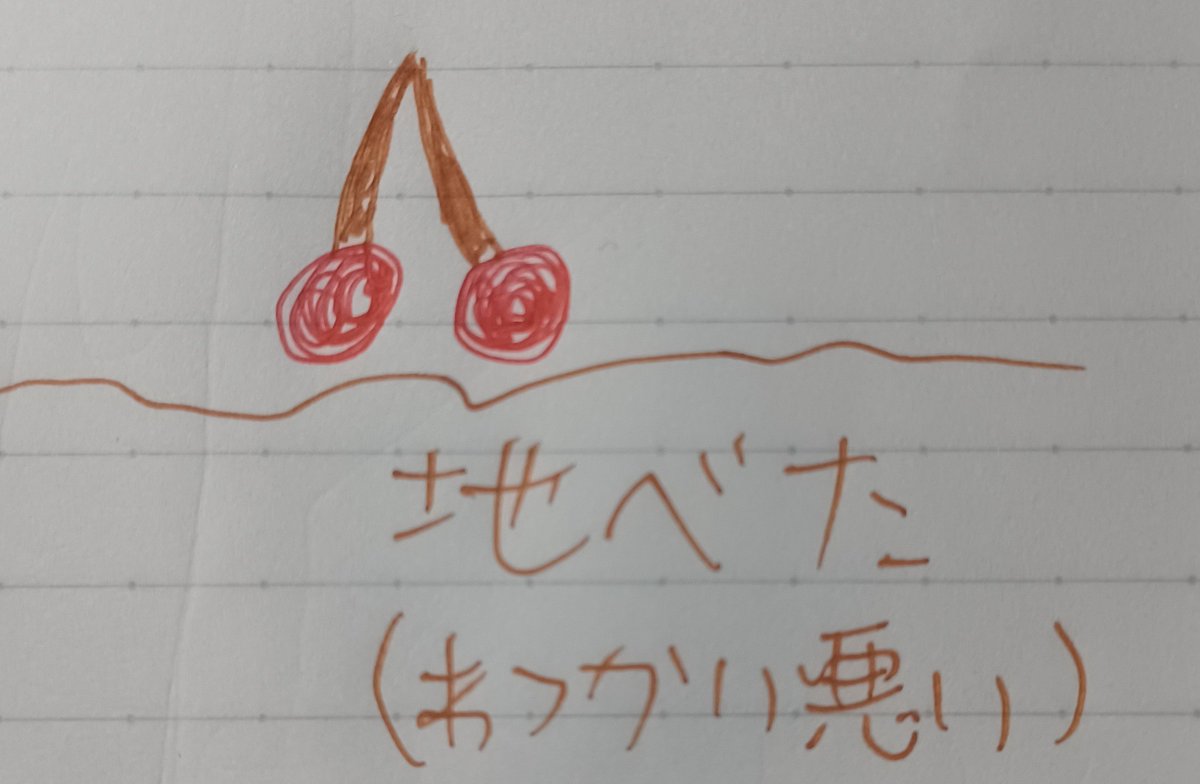 地べた
(あつかい悪い)